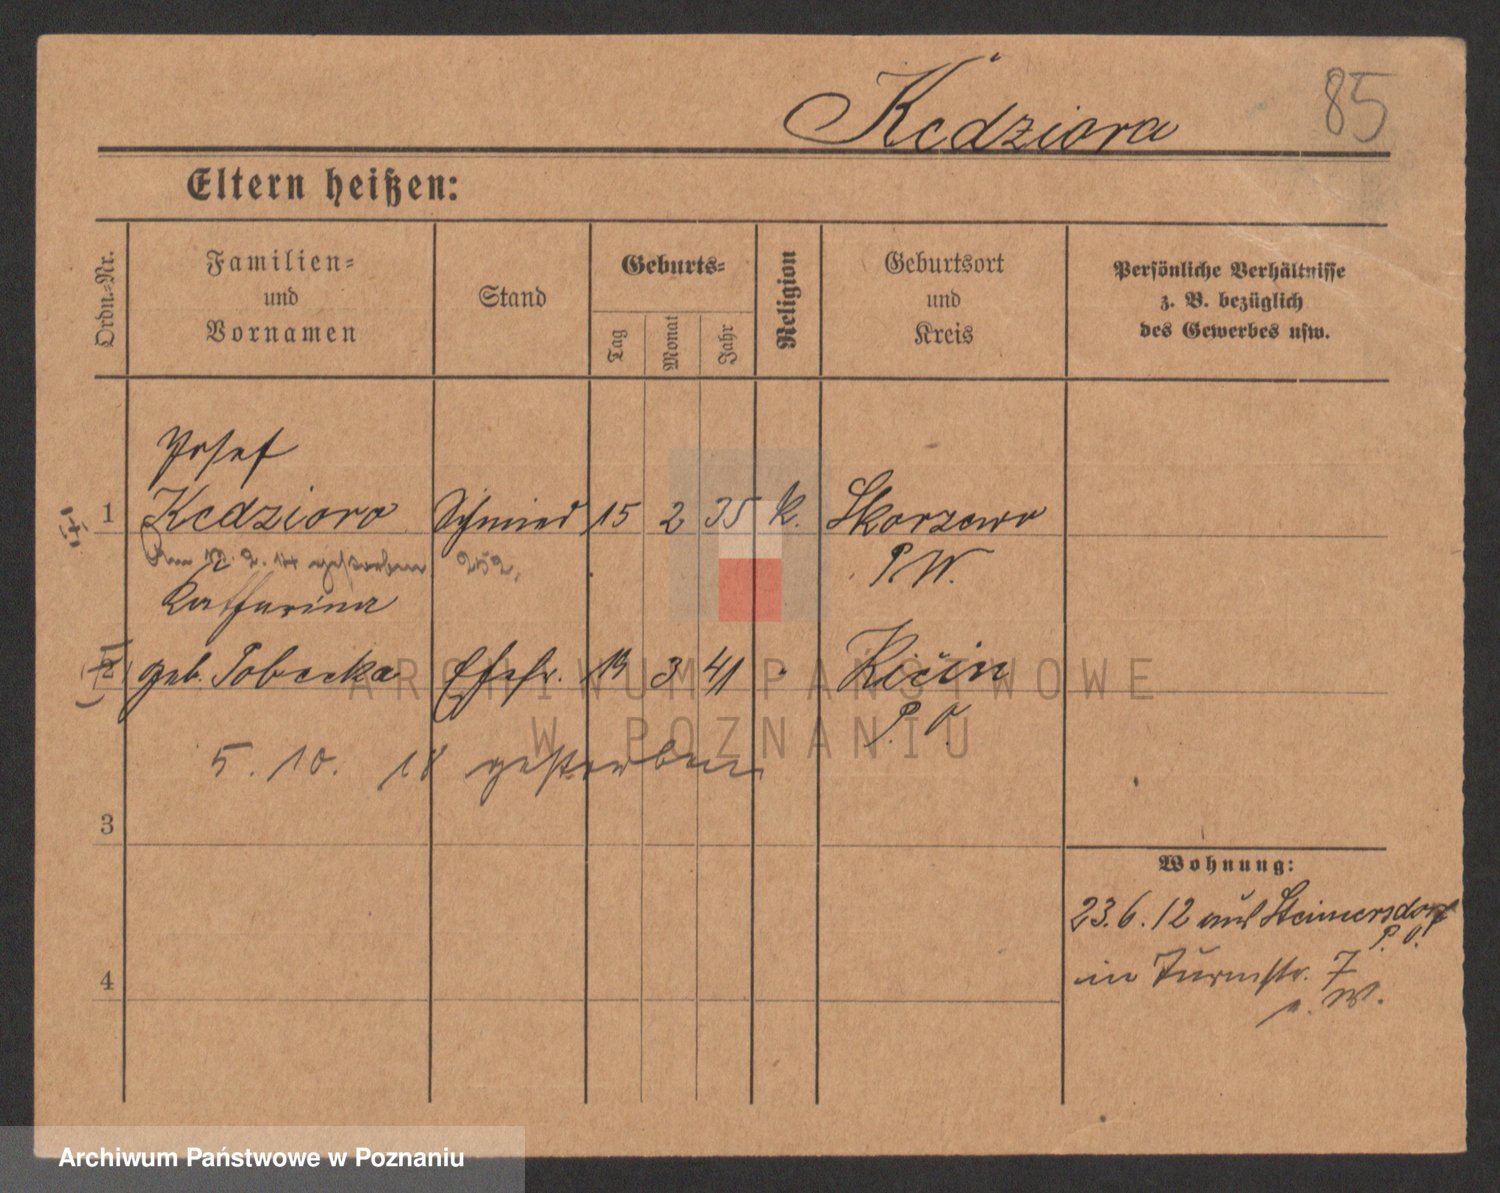 Kedziora
85
Eltern heißen:
Ordn.-Nr.
Familien-
und
Vornamen
Stand
Geburts-
Tag
Monat
Jahr
Religion
Geburtsort
und
Kreis
Persönliche Verhältnisse
z. B. bezüglich
des Gewerbes usw.
Josef
1 Kedziora Schmied 15 2 35 k. Skorzewo
P. W.
Am 12. 2. 14 gestorben 252.
Katharina
2 geb. Tobecka Ehefr. 3 41 Kicin
P. O.
5. 10. 18 gestorben
3
4
Wohnung:
23. 6. 12 aus Steimersdorf
P. O.
in Turmstr. 7
ARCHIWUM PAŃSTWOWE
W POZNANIU
Archiwum Państwowe w Poznaniu